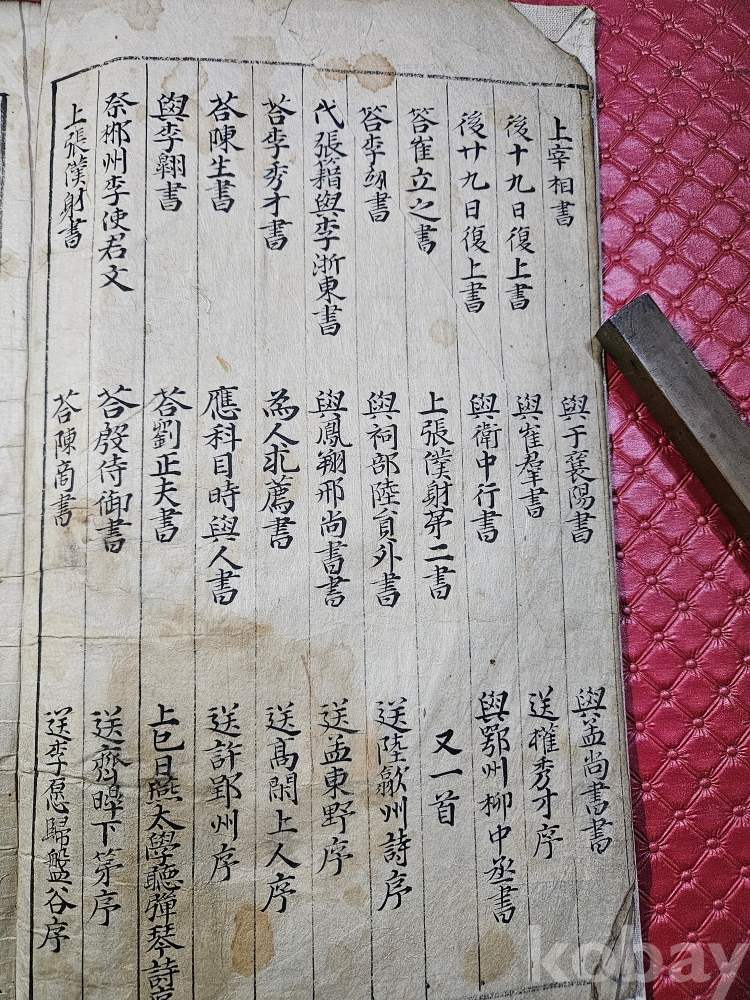 上宰相書 與于襄陽書 與孟尚書書
後十九日復上書 與崔羣書 送權秀才序
後廿九日復上書 與衛中行書 與鄂州柳中丞書
答崔立之書 上張僕射苐二書 又一首
答李翊書 與祠部陸貟外書 送陸歙州詩序
代張籍與李浙東書 與鳳翔邢尚書書 送孟東野序
荅李秀才書 為人求薦書 送高閑上人序
荅陳生書 應科目時與人書 送許郢州序
與李翱書 荅劉正夫書 上巳日燕太學聽彈琴詩序
祭郴州李使君文 荅殷侍御書 送齊暤下苐序
上張僕射書 荅陳商書 送李愿歸盤谷序
kobay